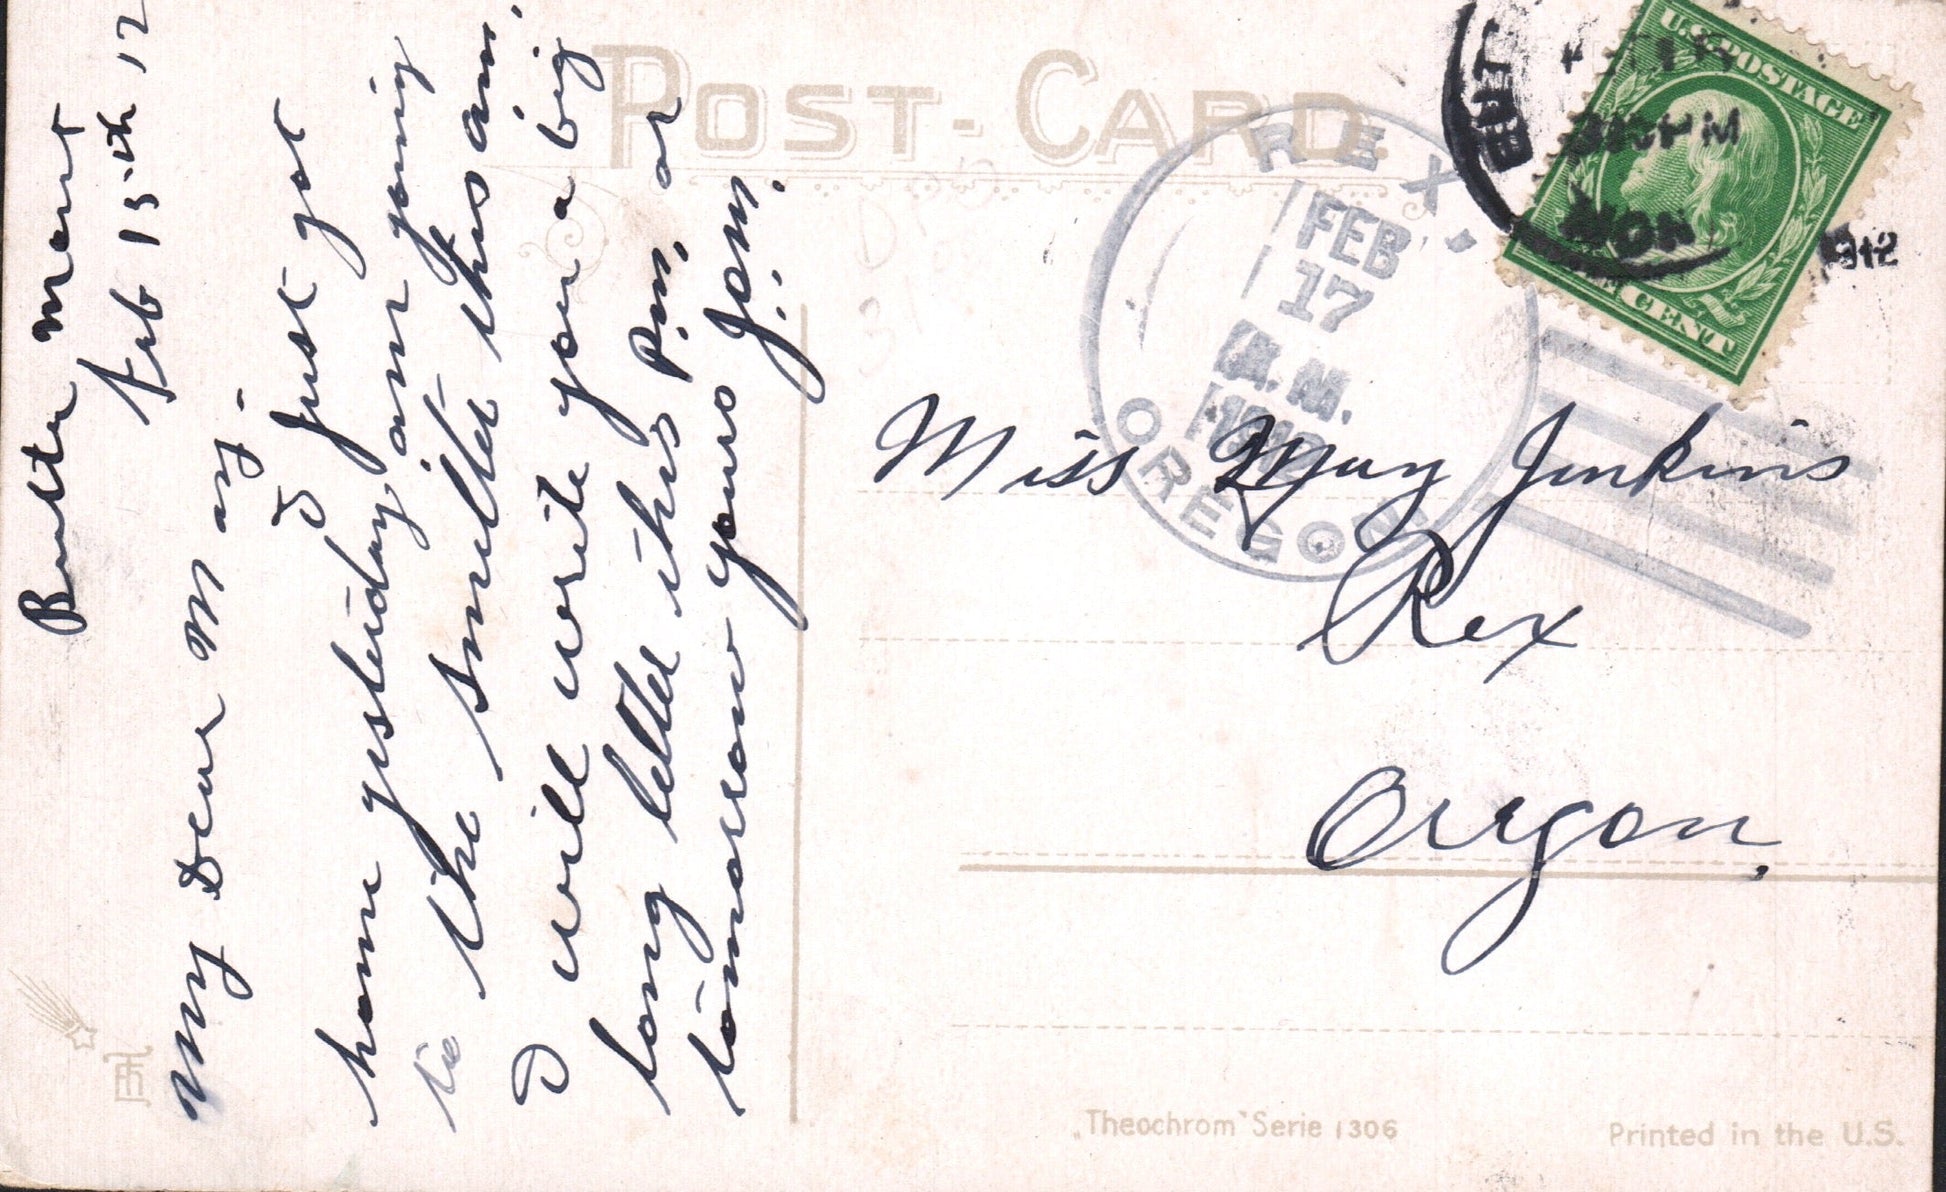 POST-CARD
Butte Mont
Feb 15th 12
My Dear May-
I just got
home yesterday, am going
to the smelter this am.
I will write you a big
long letter this Pm, or
tomorrow yours Jam.
REX
FEB
17
A.M.
1912
OREGON
BUTTE
PM
MON
1912
U.S. POSTAGE
1 CENT
Miss May Jenkins
Rex
Oregon,
"Theochrom" Serie 1306
Printed in the U.S.